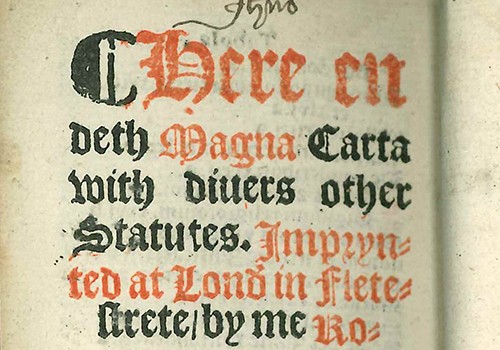 ¶ Here en
deth Magna Carta
with diuers other
Statutes. Impryn⸗
ted at Lond̄ in Flete⸗
strete/by me Ro⸗